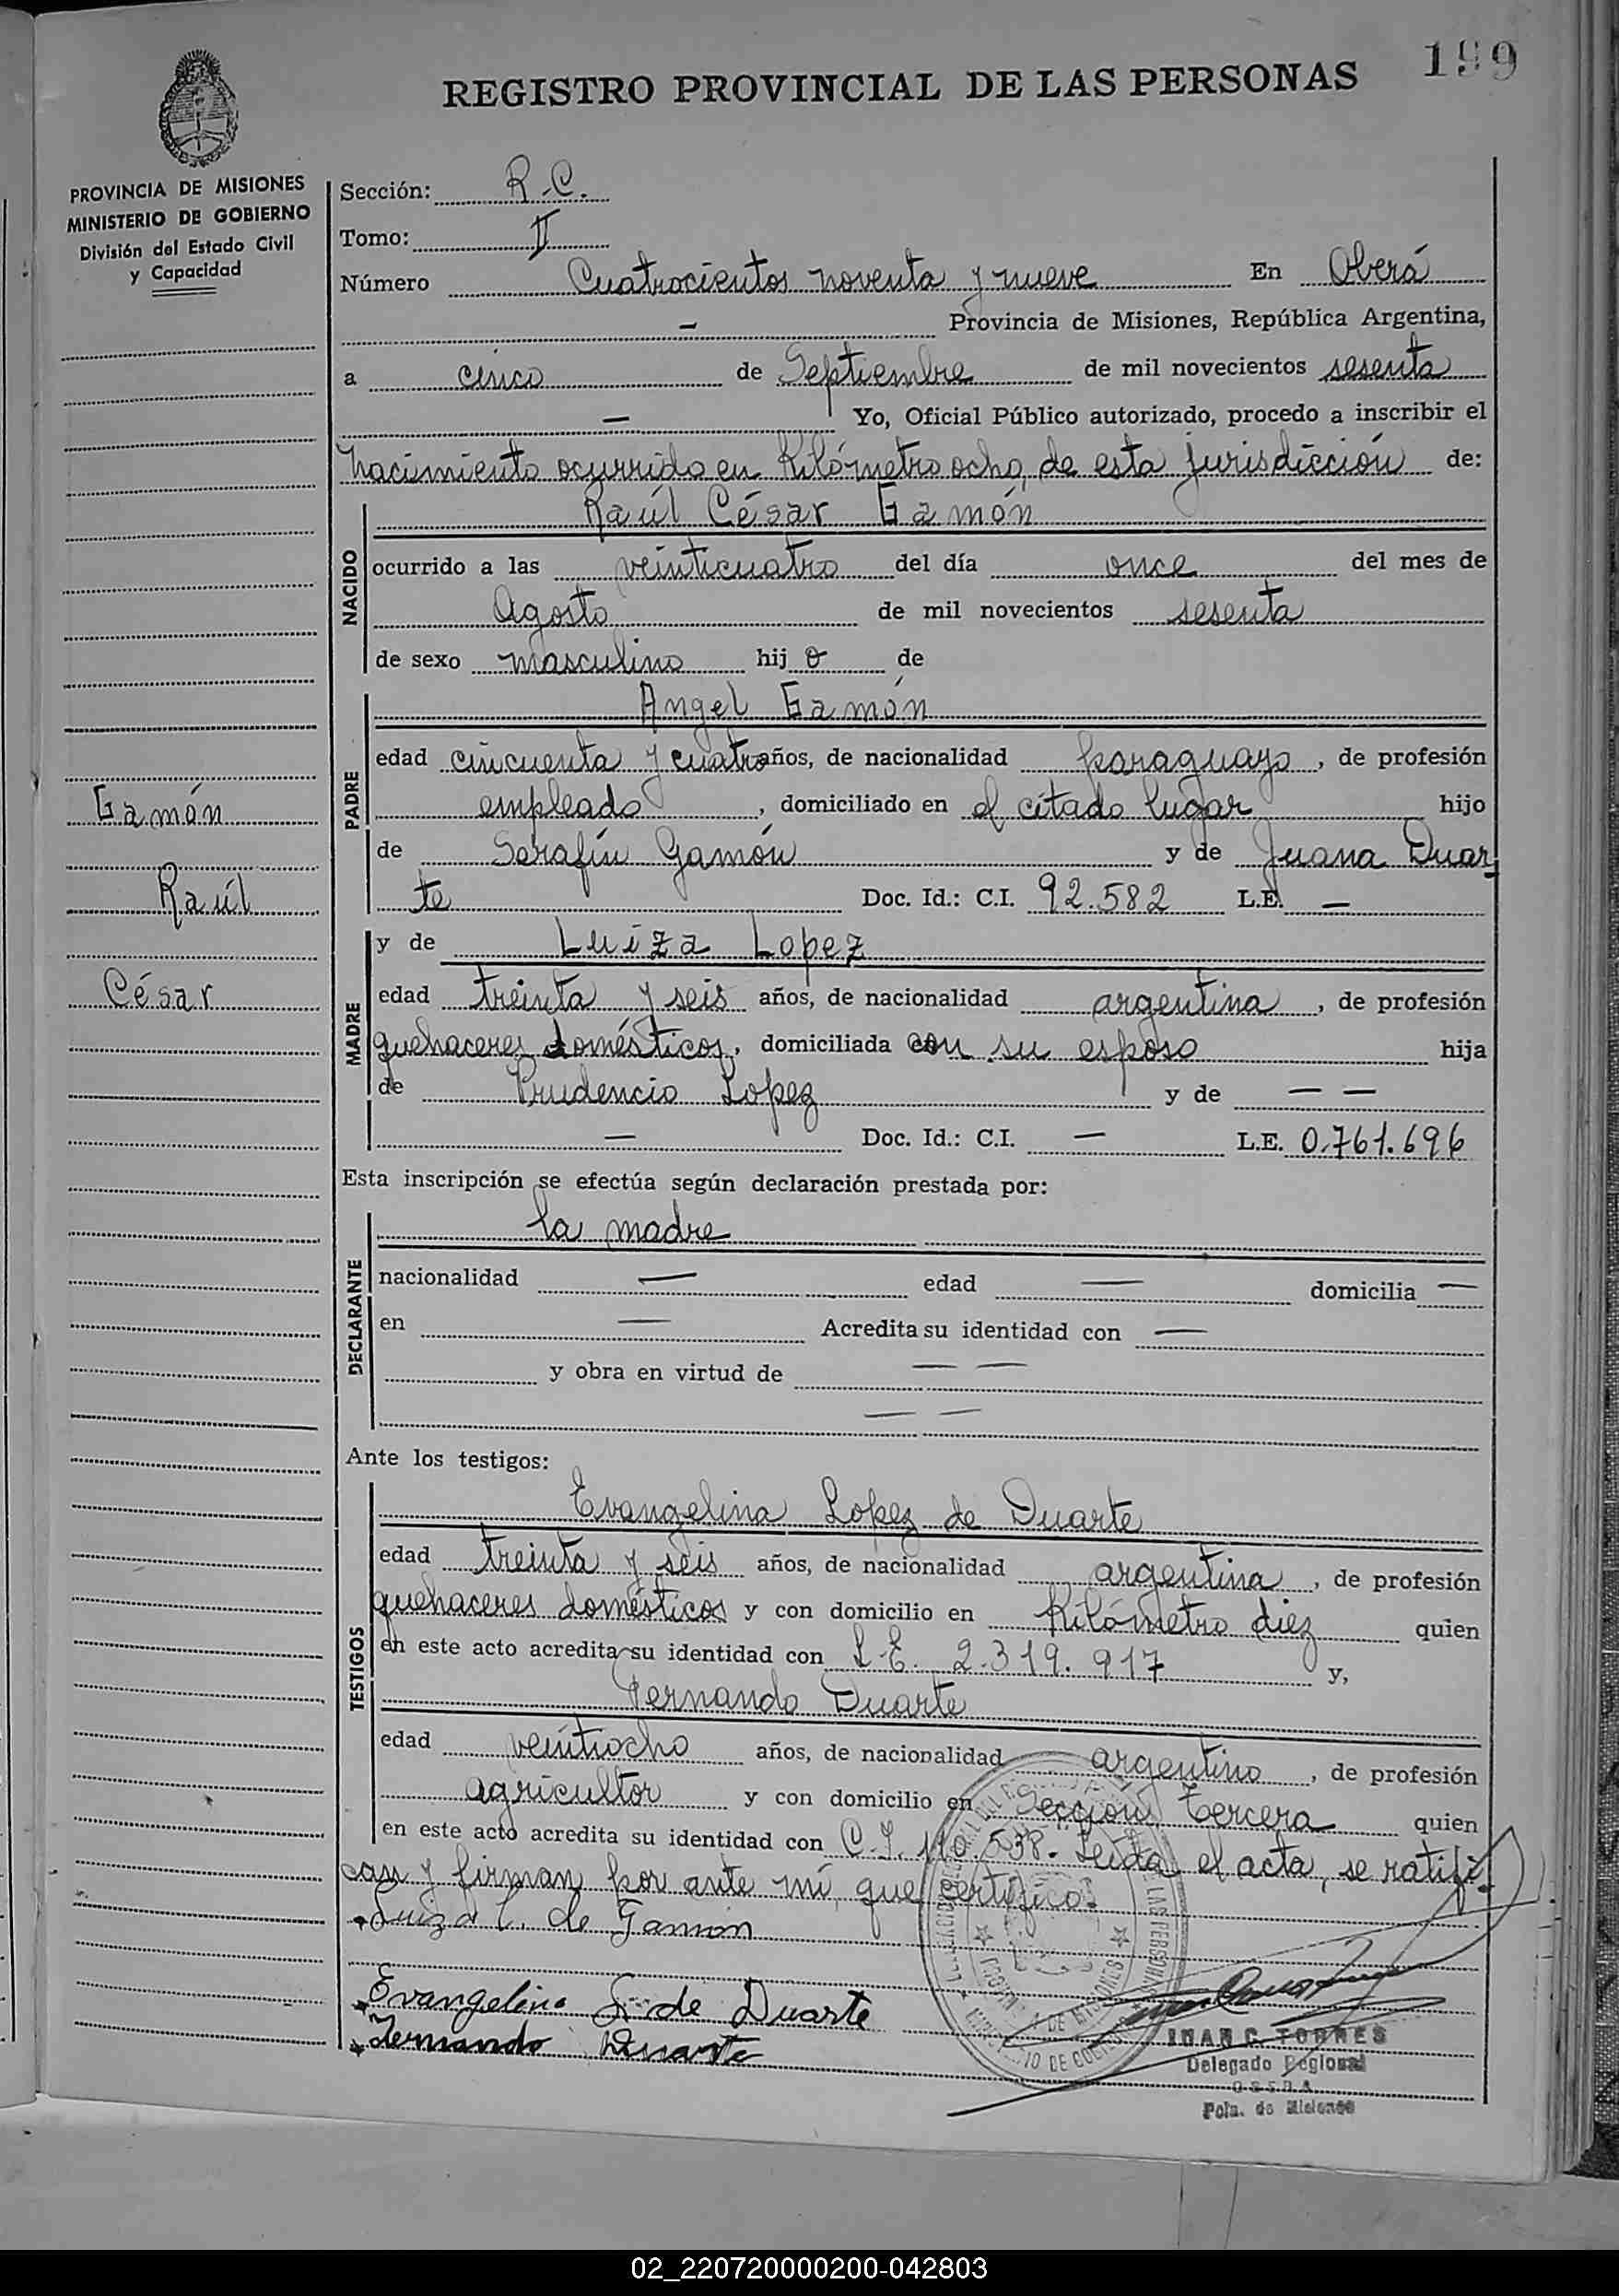 199
REGISTRO PROVINCIAL DE LAS PERSONAS
PROVINCIA DE MISIONES
MINISTERIO DE GOBIERNO
División del Estado Civil
y Capacidad
Sección: R.C.
Tomo: II
Número Cuatrocientos noventa y nueve En Oberá
— Provincia de Misiones, República Argentina,
a cinco de Septiembre de mil novecientos sesenta
— Yo, Oficial Público autorizado, procedo a inscribir el
nacimiento ocurrido en Kilómetro ocho, de esta jurisdicción de:
Raúl César Gamón
NACIDO
ocurrido a las veinticuatro del día once del mes de
Agosto de mil novecientos sesenta
de sexo masculino hijo de
Angel Gamón
PADRE
edad cincuenta y cuatro años, de nacionalidad paraguayo, de profesión
empleado, domiciliado en el citado lugar hijo
de Serafín Gamón y de Juana Duar
te Doc. Id.: C.I. 92.582 L.E. —
Gamón
Raúl
César
y de Luiza Lopez
MADRE
edad treinta y seis años, de nacionalidad argentina, de profesión
quehaceres domésticos, domiciliada con su esposo hija
de Prudencio Lopez y de — —
— Doc. Id.: C.I. — L.E. 0.761.696
Esta inscripción se efectúa según declaración prestada por:
la madre
DECLARANTE
nacionalidad — edad — domicilia —
en — Acredita su identidad con —
y obra en virtud de — —
— —
Ante los testigos:
Evangelina Lopez de Duarte
TESTIGOS
edad treinta y seis años, de nacionalidad argentina, de profesión
quehaceres domésticos y con domicilio en Kilómetro diez quien
en este acto acredita su identidad con L.E. 2.319.917 y,
Fernando Duarte
edad veintiocho años, de nacionalidad argentino, de profesión
agricultor y con domicilio en Sección Tercera quien
en este acto acredita su identidad con C.I. 110.538. Leída el acta, se ratifi
can y firman por ante mí, que certifico.
Luiza L. de Gamon
Evangelina L. de Duarte
Fernando Duarte
JUAN C. TORRES
Delegado Regional
OBERA
Pcia. de Misiones
02_220720000200-042803